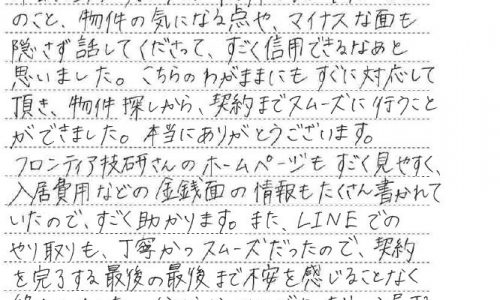 のこと、物件の気になる点や、マイナスな面も
隠さず話してくださって、すごく信用できるなあと
思いました。こちらのわがままにもすぐに対応して
頂き、物件探しから、契約までスムーズに行うこと
ができました。本当にありがとうございます。
フロンティア技研さんのホームページもすごく見やすく、
入居費用などの金銭面の情報もたくさん書かれて
いたので、すごく助かります。また、LINEでの
やり取りも、丁寧かつスムーズだったので、契約
を完了する最後の最後まで不安を感じることなく